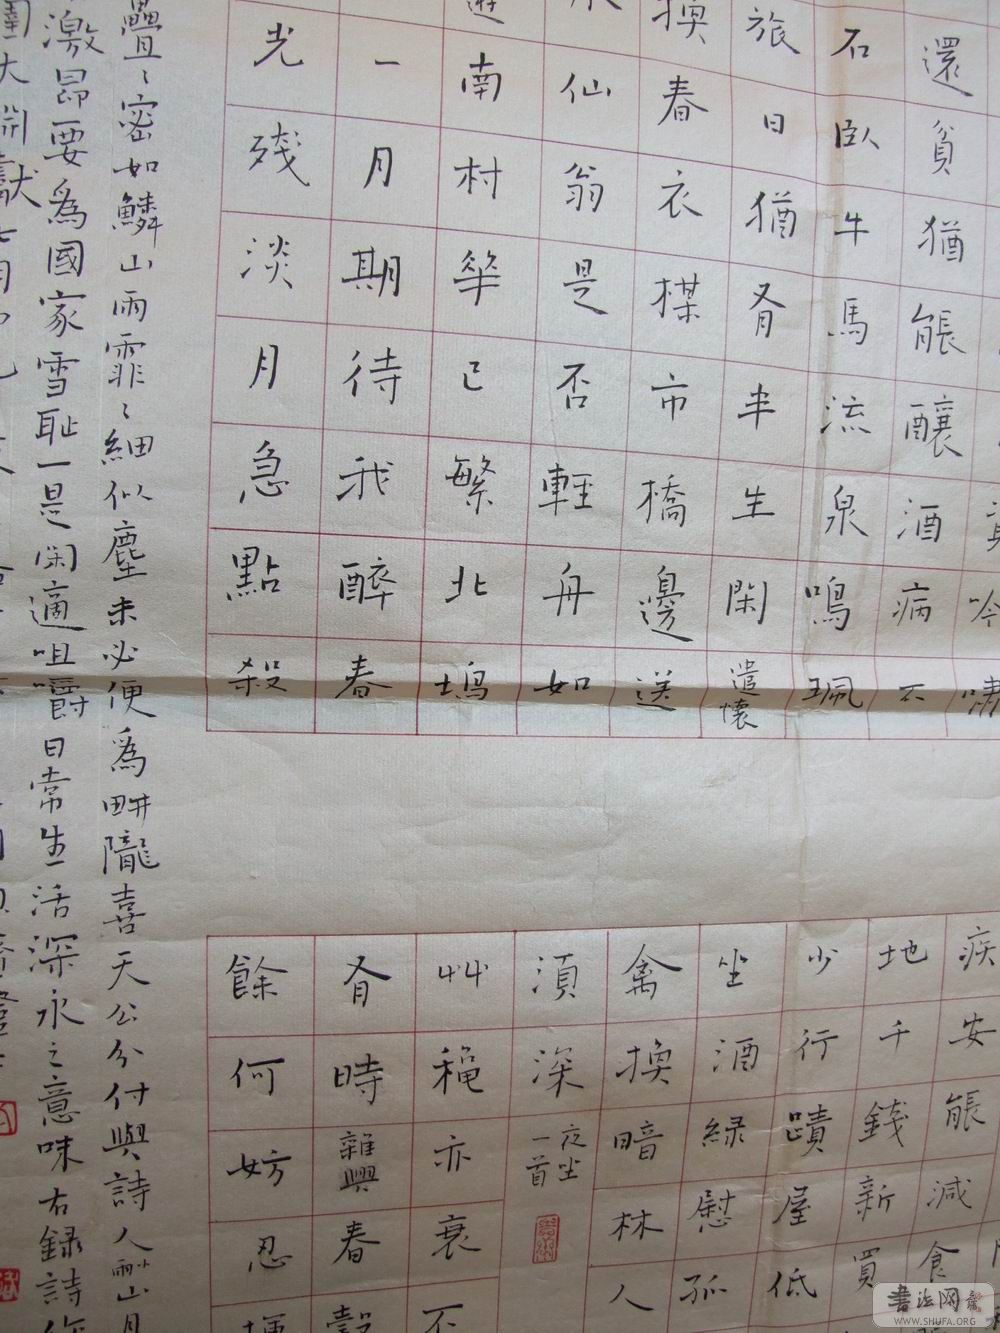 吟嘯
還貧猶能釀酒病不
石臥牛馬流泉鳴珮
旅日猶有半生閑 遣懷
換春衣楳市橋邊送
仙翁是否輕舟如
遊南村華已繁北塢
一月期待我醉春
光殘淡月急點殺
疾安能減食
地千錢新買
少行蹟屋低
坐酒綠慰孤
禽換暗林人
須深 夜坐一首
艸亦衰不
有時 雜興 春穀
餘何妨忍
疊〻密如鱗山雨霏〻細似塵未必便為畊隴喜天公分付與詩人山月
激昂要為國家雪恥一是閑適咀嚼日常生活深永之意味右錄詩作
書法网
WWW.SHUFA.ORG